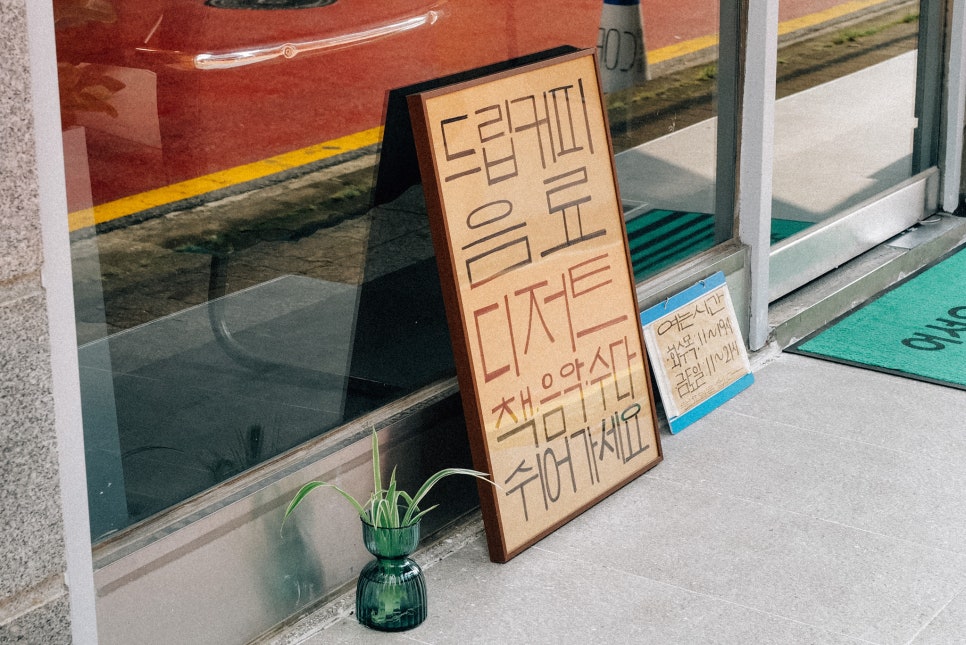 드립커피
음료
디저트
책.음악.수다
쉬어가세요
여는시간
11~19시
금토일 11~21시
어서오